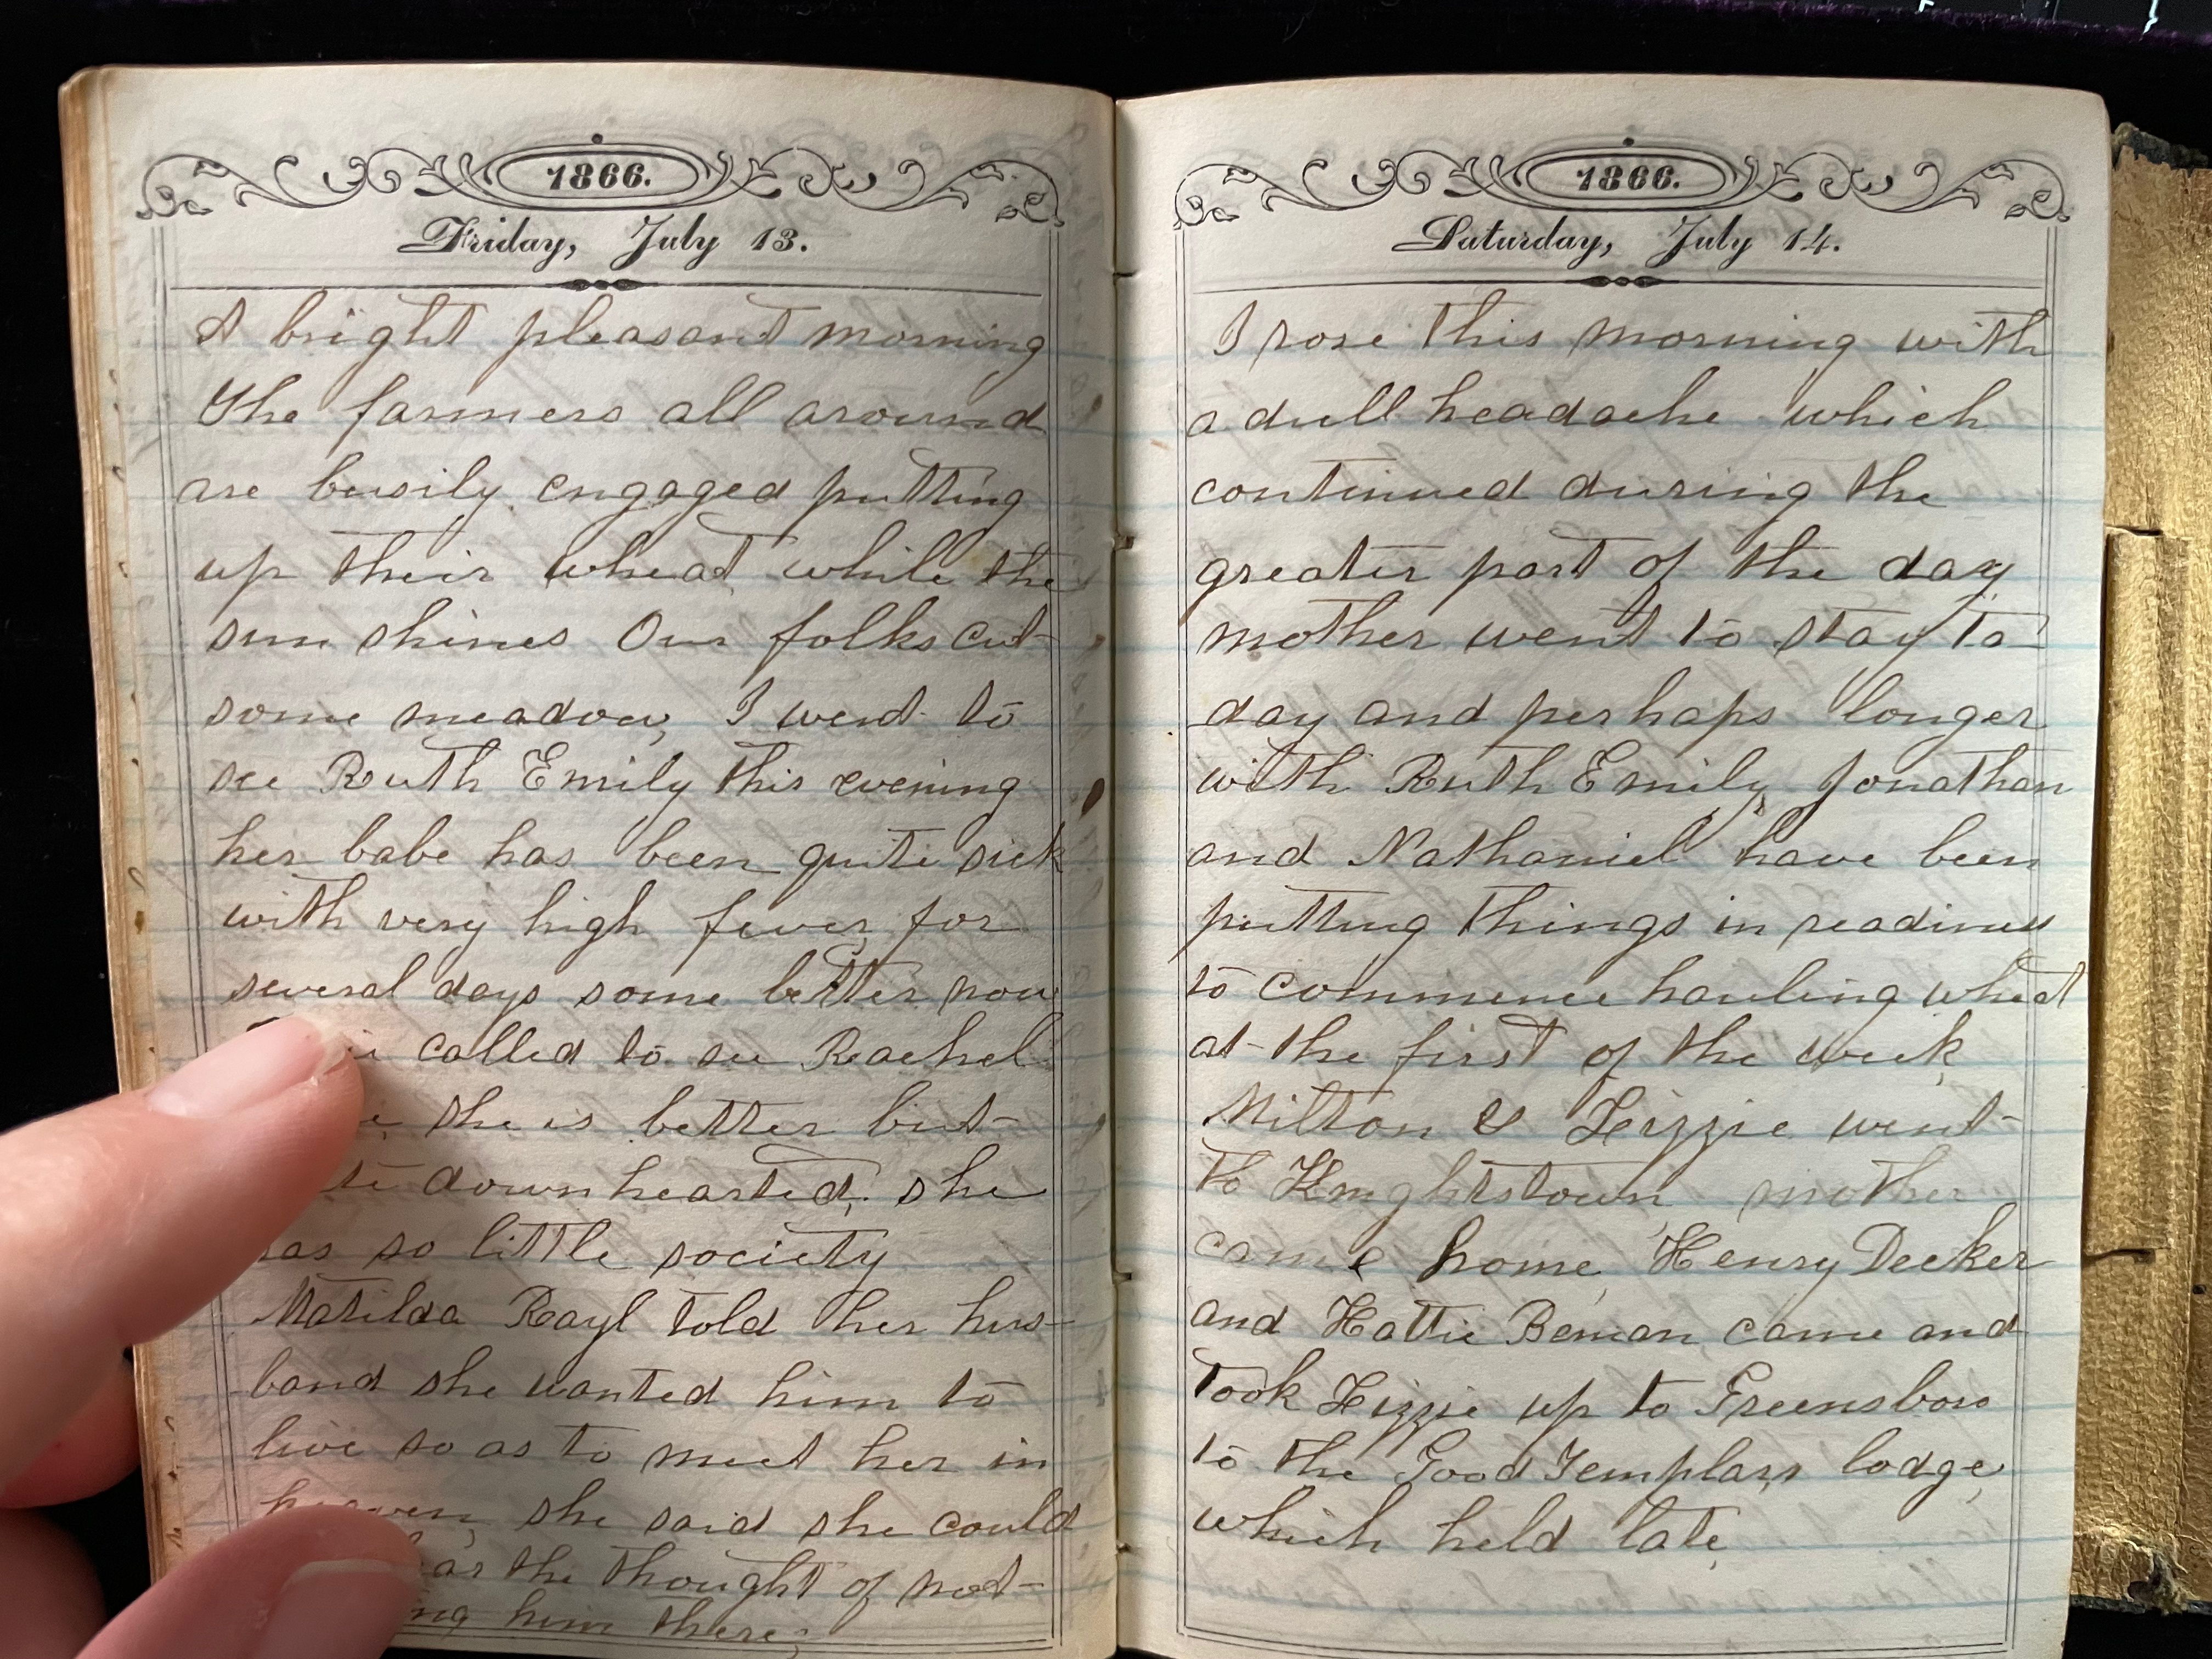 1866.
Friday, July 13.
A bright pleasant morning
The farmers all around
are busily engaged putting
up their wheat while the
sun shines Our folks cut
some meadow, I went to
see Ruth Emily this evening
her babe has been quite sick
with very high fever for
several days some better now
called to see Rachel
she is better but
downhearted, she
so little society
Matilda Rayl told her hus-
band she wanted him to
live so as to meet her in
heaven, she said she could
the thought of not
him there;
1866.
Saturday, July 14.
I rose this morning with
a dull headache which
continued during the
greater part of the day
mother went to stay to-
day and perhaps longer
with Ruth Emily, Jonathan
and Nathaniel have been
putting things in readiness
to commence hauling wheat
at the first of the week,
Milton & Lizzie went
to Knightstown mother
came home, Henry Decker
and Hattie Beman came and
took Lizzie up to Greensboro
to the Good Templars lodge,
which held late,